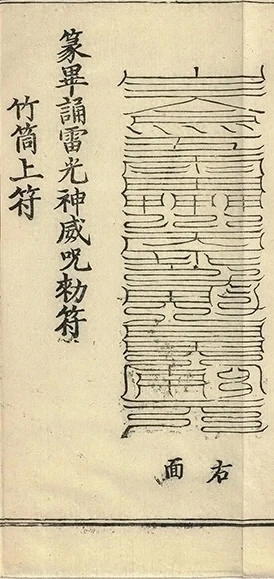 右面
篆畢誦雷光神威咒勑符
竹筒上符